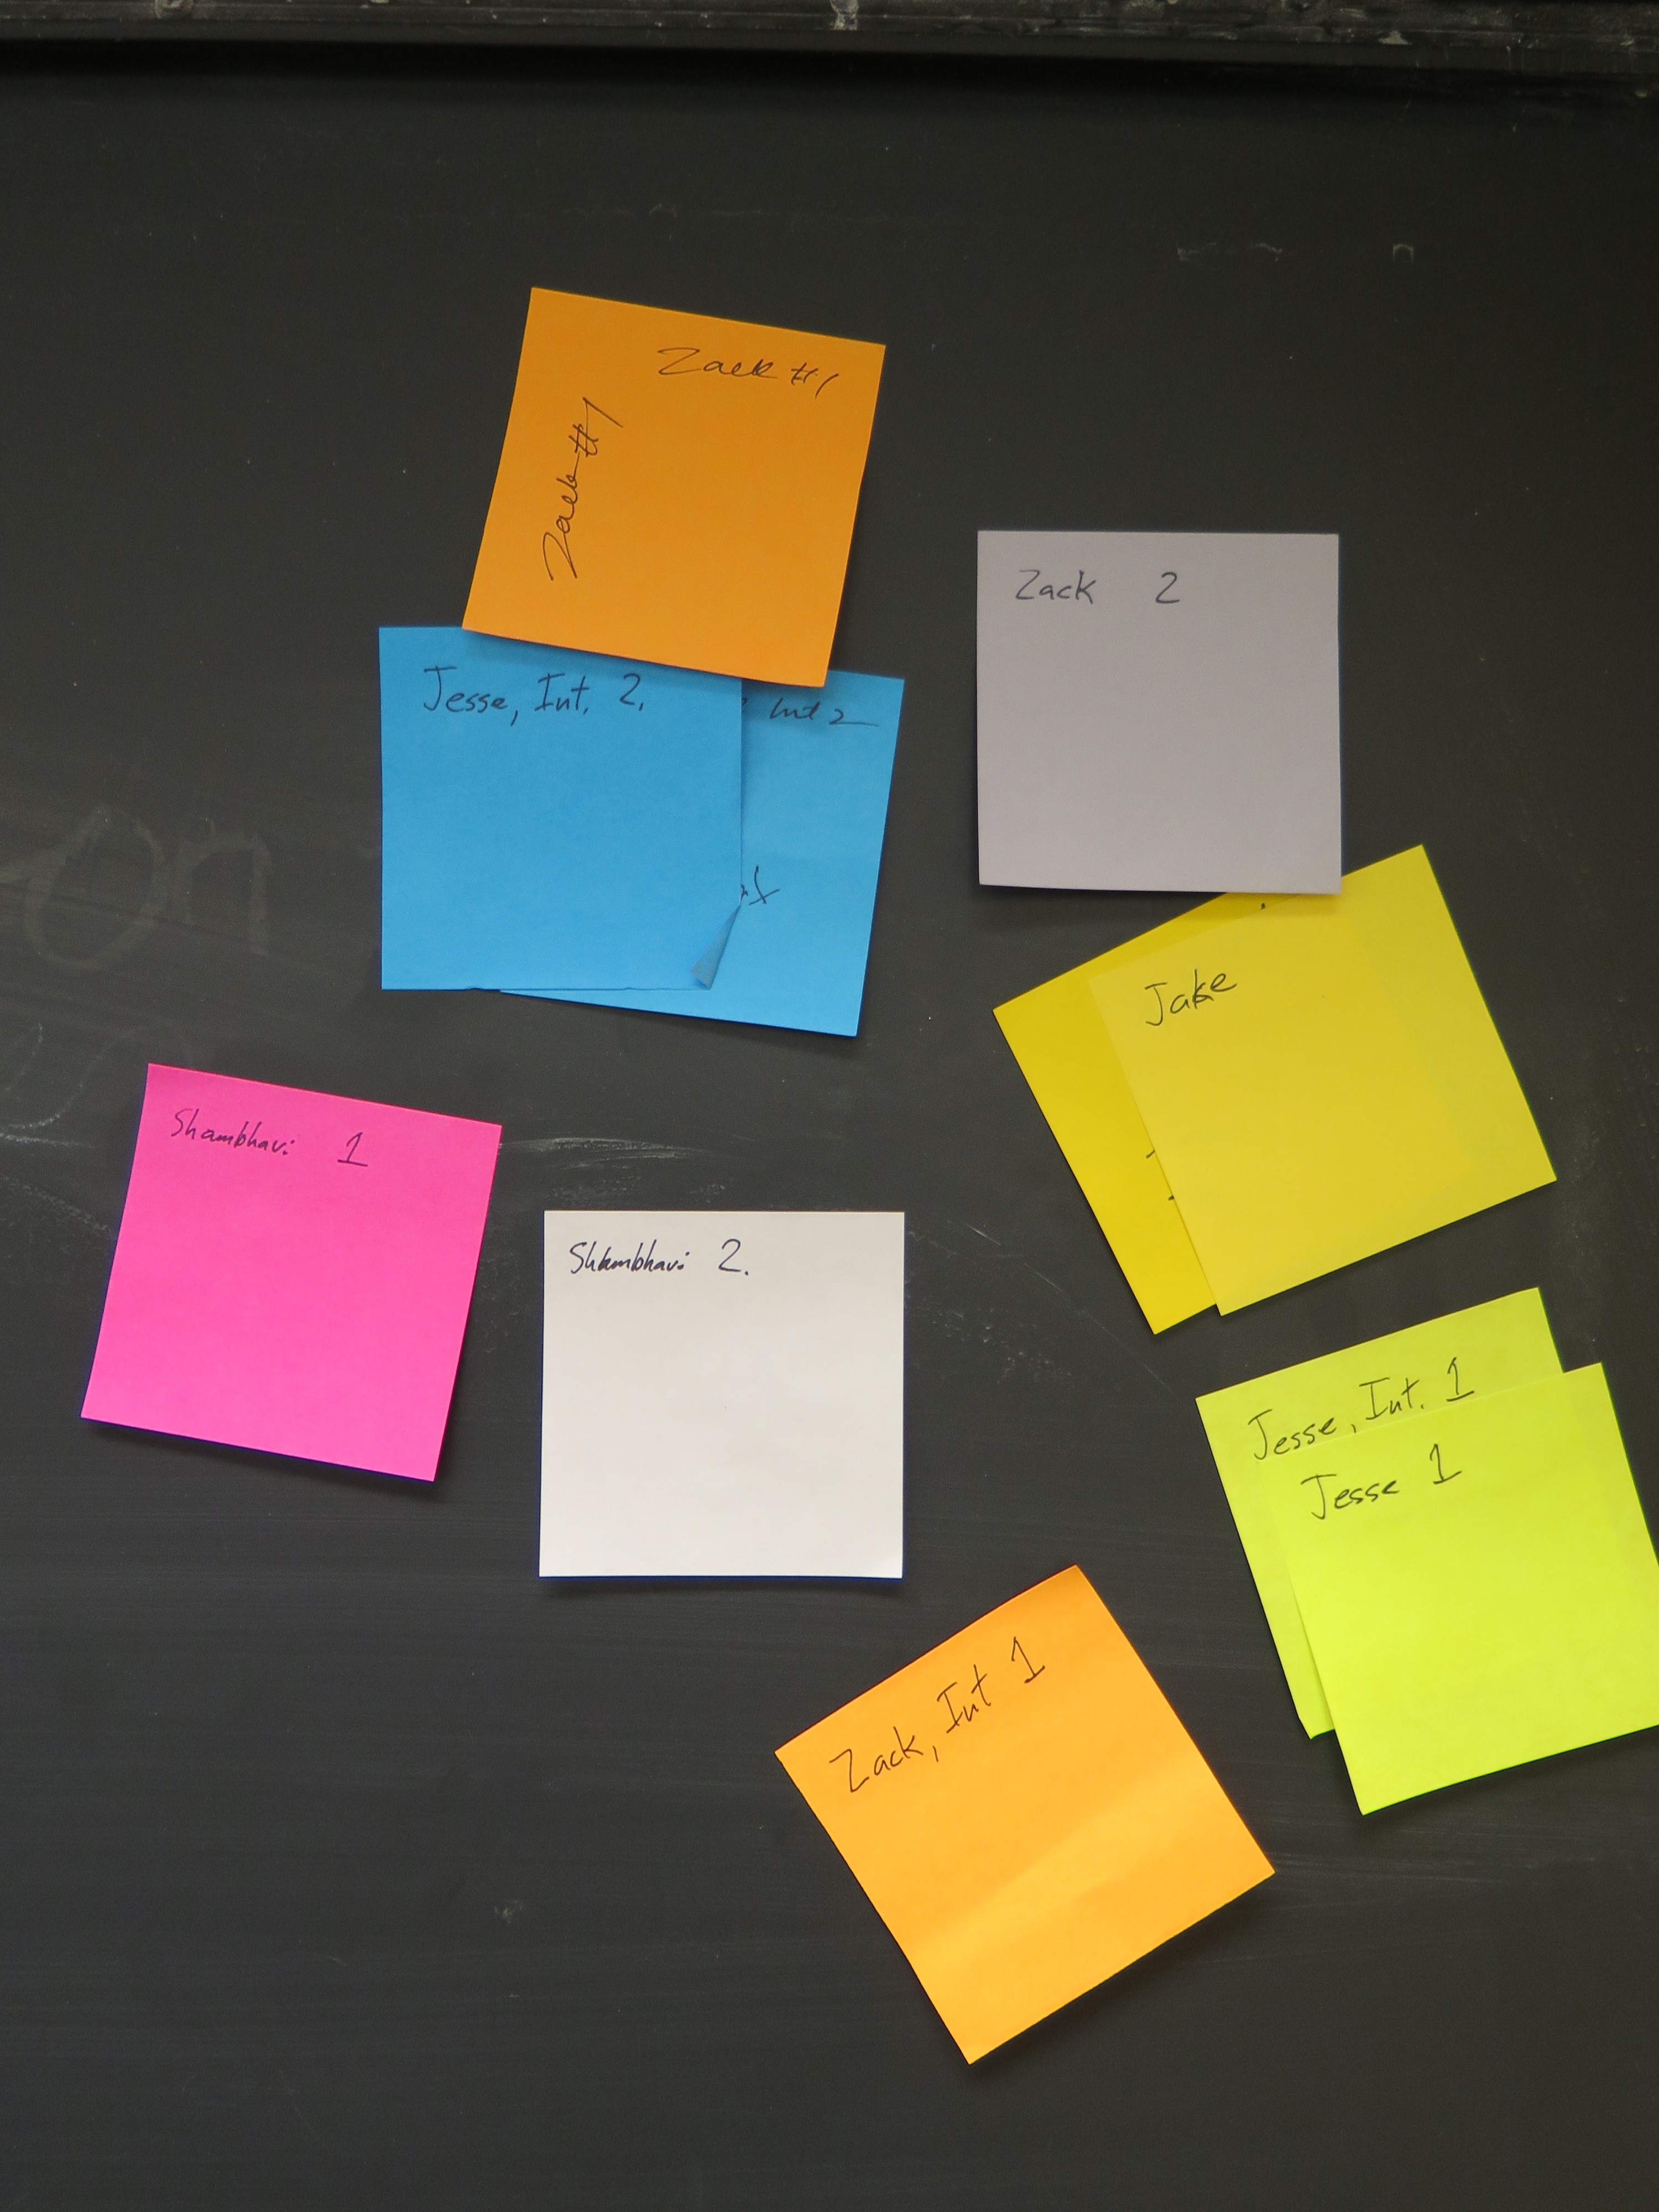 Zack #1
Zack #1
Zack 2
Jesse, Int. 2.
Int 2
Jake
Shambhavi 1
Shambhavi 2.
Jesse, Int. 1
Jesse 1
Zack, Int 1
on